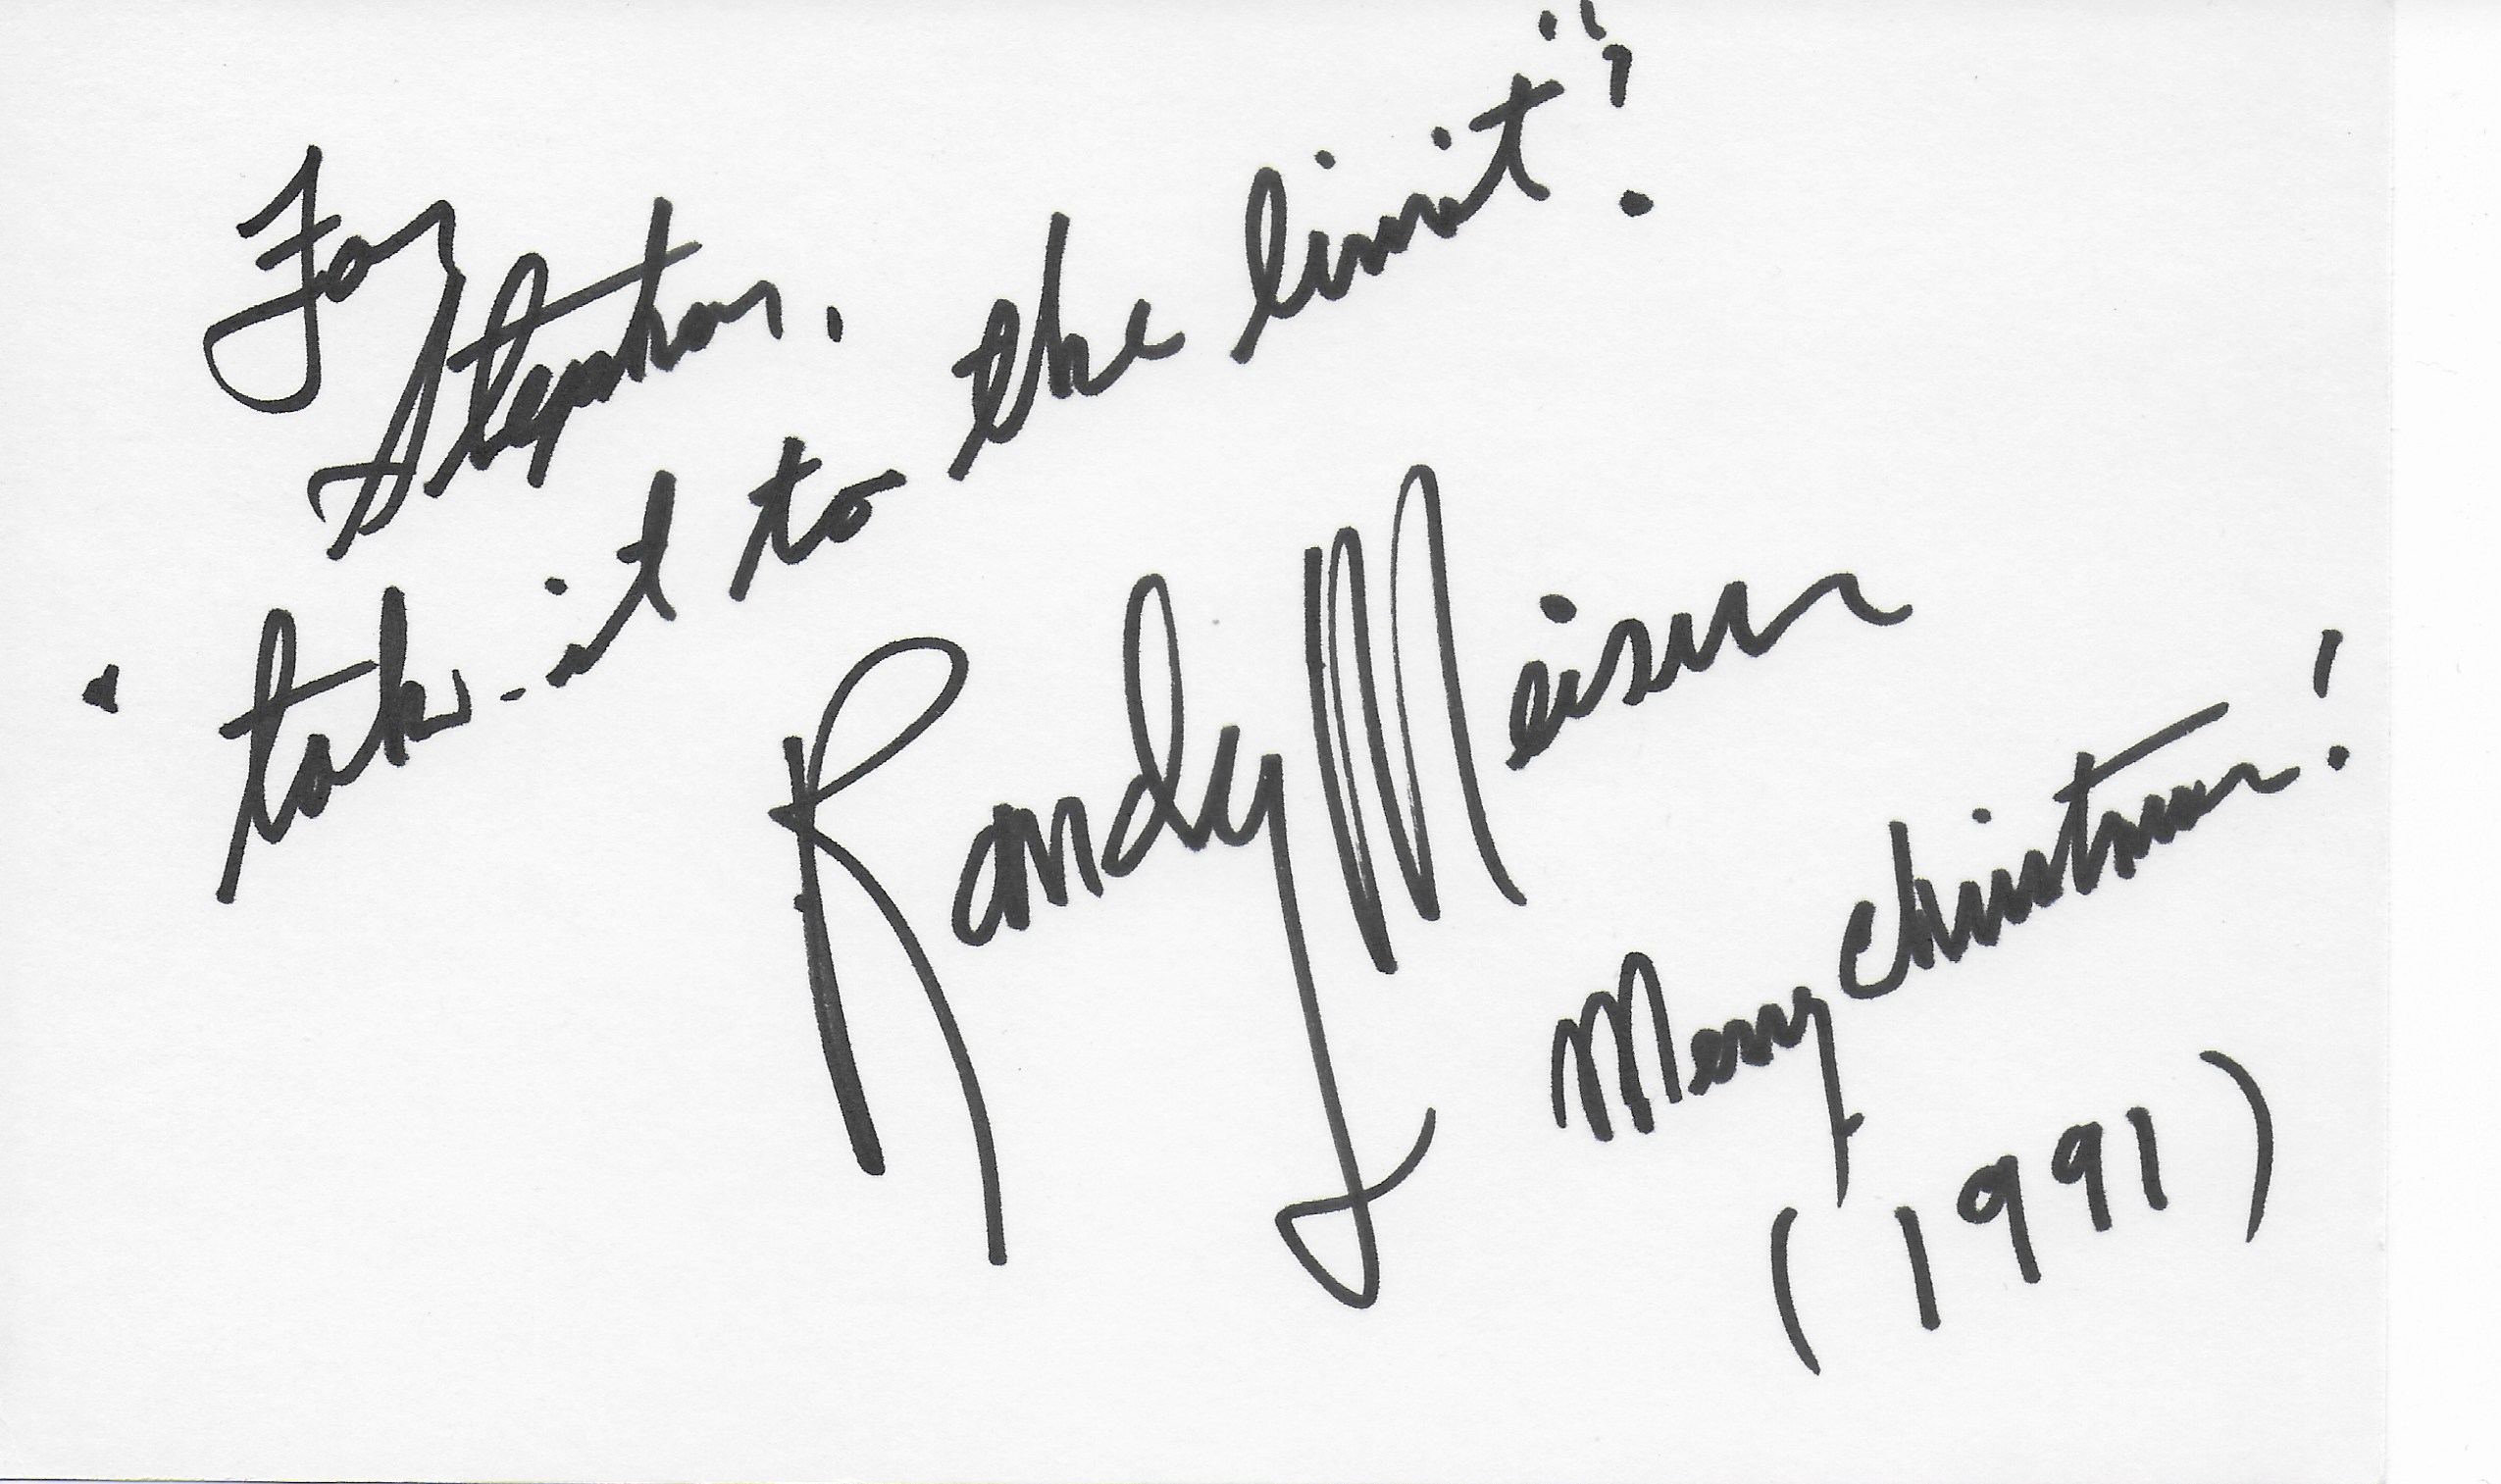 For
Stephan,
"take-it to the limit"!
Randy Meisner
Merry christmas!
(1991)